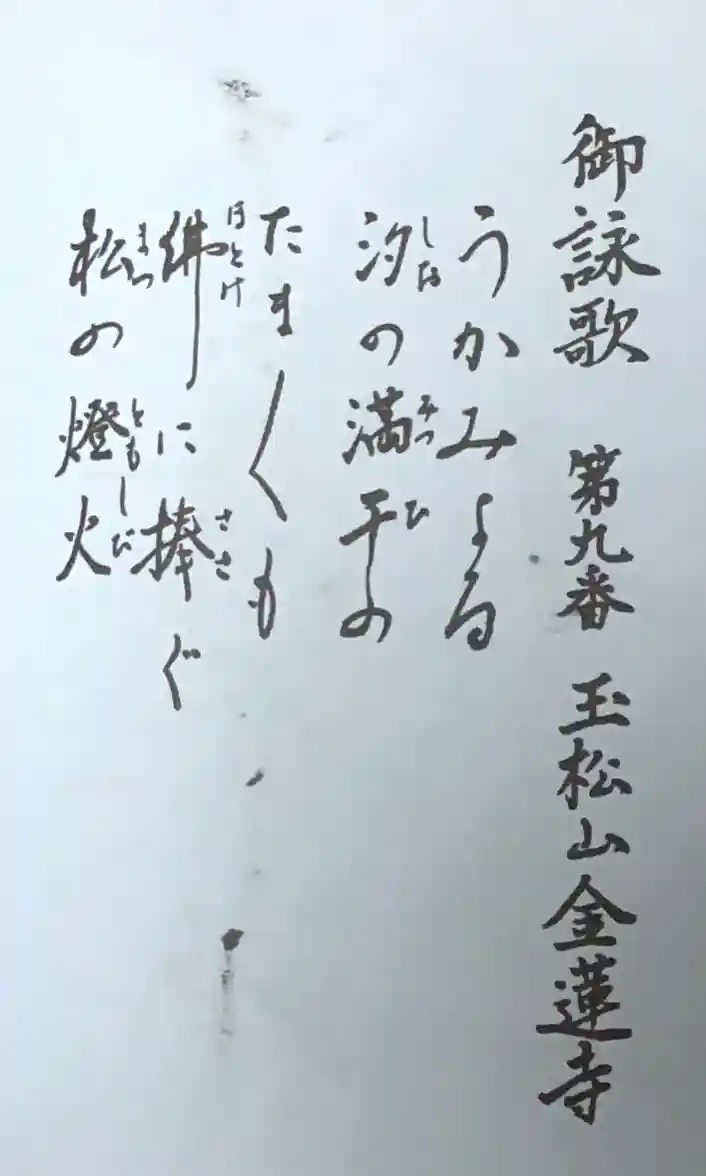 御詠歌 第九番 玉松山金蓮寺
うかみよる
汐の満干の
しお みつ ひ
たま〱も
佛に捧ぐ
ほとけ ささ
松の燈火
まつ ともしび